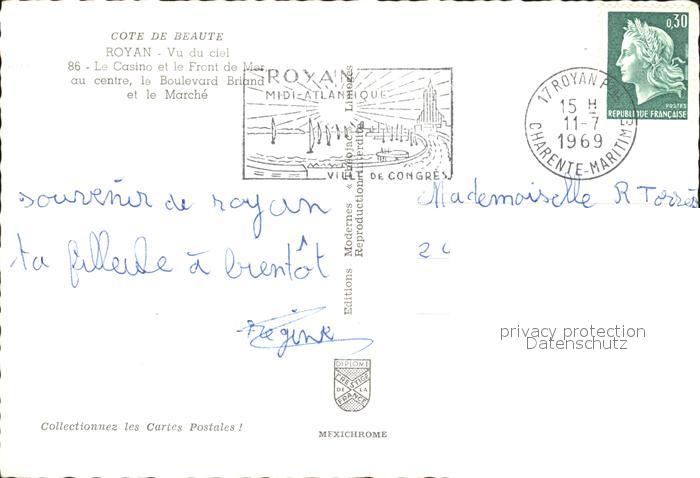 COTE DE BEAUTE
ROYAN - Vu du ciel
86 - Le Casino et le Front de Mer
au centre, le Boulevard Briand
et le Marché
ROYAN
MIDI-ATLANTIQUE
VILLE DE CONGRÈS
17 ROYAN P
15 H
11-7
1969
CHARENTE-MARITIME
0,30
POSTES
REPUBLIQUE FRANÇAISE
souvenir de royan
ta filleule à bientôt
Régine
Mademoiselle R Torrès
2
Editions Modernes « Théojac » Limoges
Reproduction interdite
privacy protection
Datenschutz
DIPLOME
PRESTIGE
DE LA
FRANCE
Collectionnez les Cartes Postales !
MEXICHROME